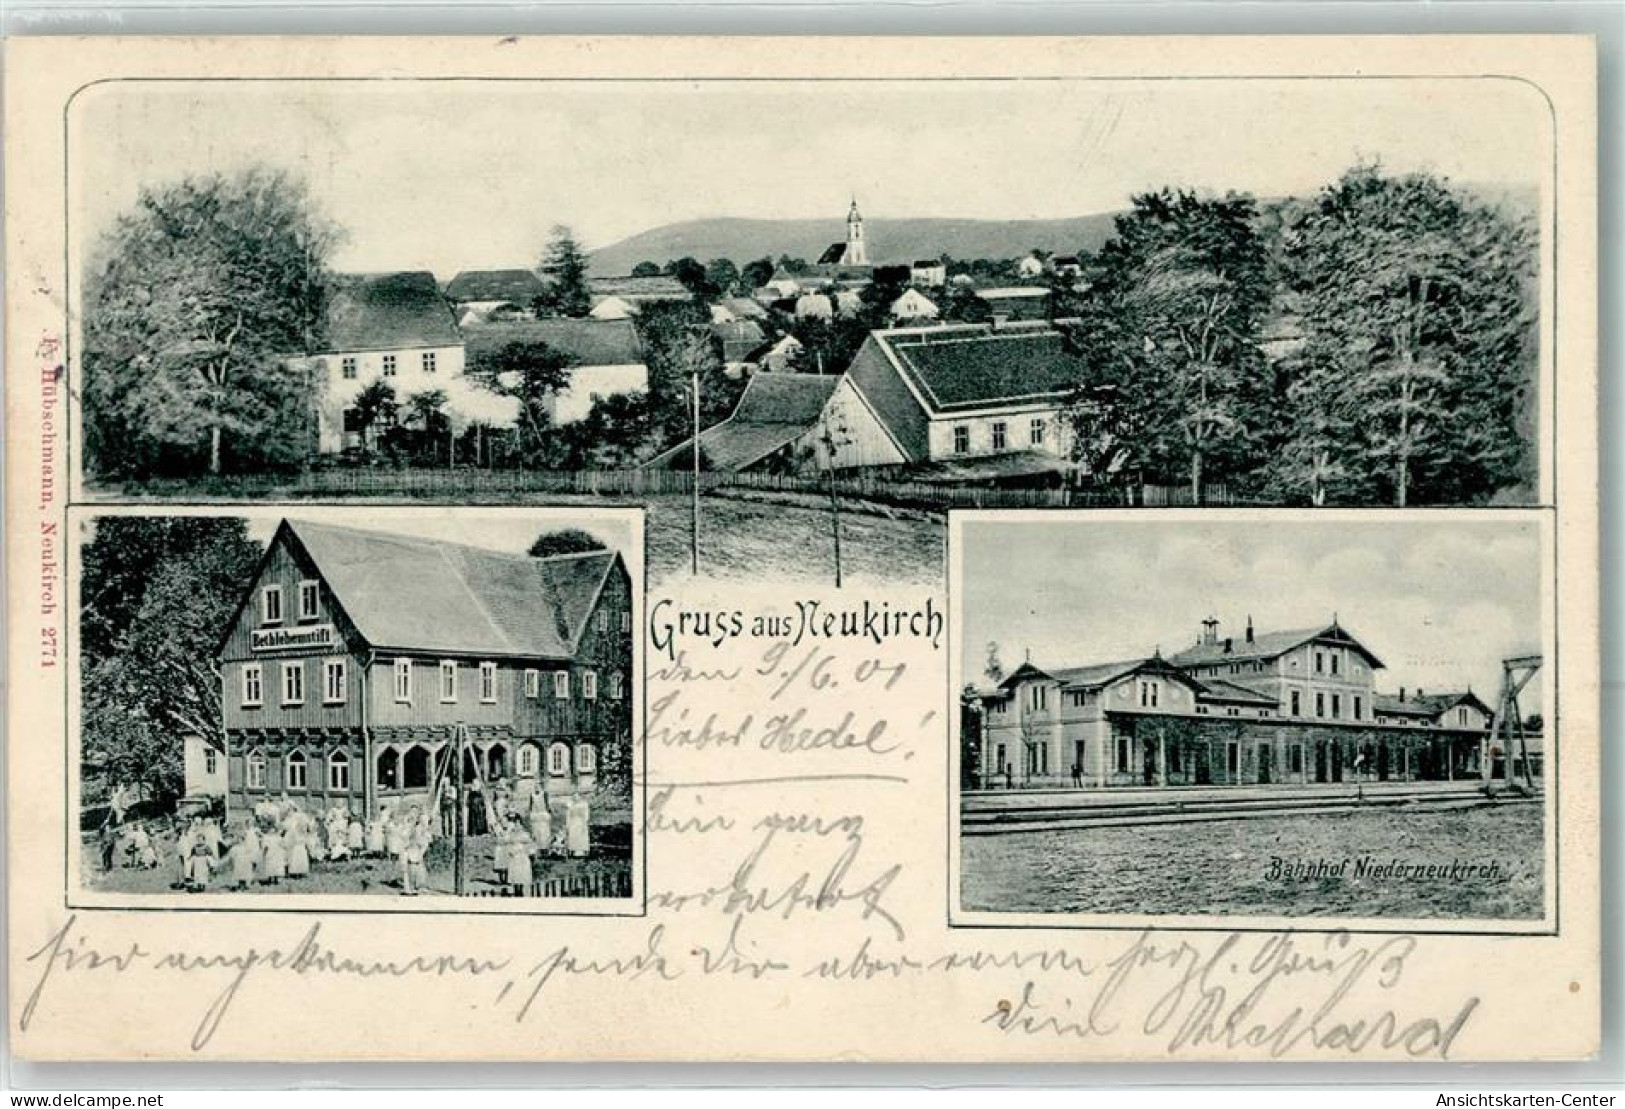 Bethlehemstift
Gruss aus Neukirch
den 9./6. 01
Liebes Hedel!
bin ganz
hier angekommen, sende Dir aber einen herzl. Gruß
Dein Richard
Bahnhof Niederneukirch
Hübschmann, Neukirch 2771
www.delcampe.net
Ansichtskarten-Center